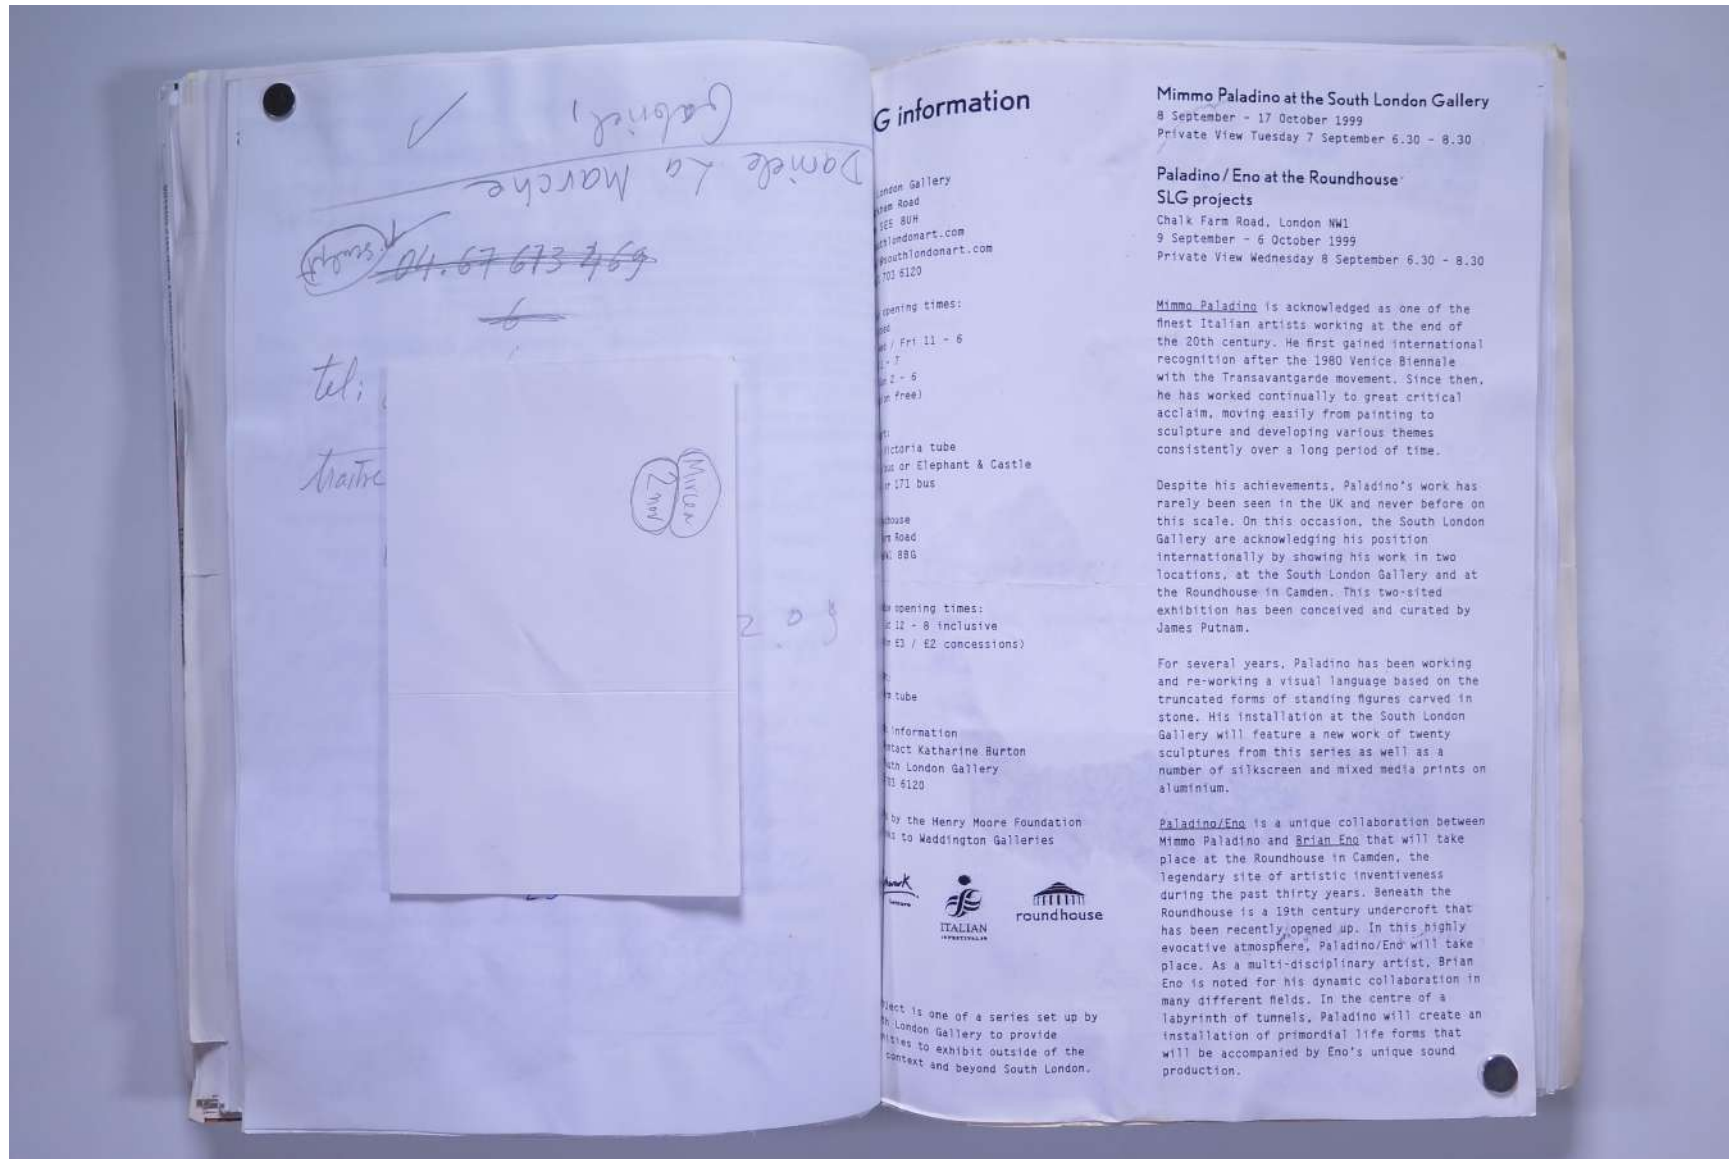 Gabriel,
Daniele La Marche
04.67 673 469
6
tel:
traitre
Mircea
2 nov
G information
London Gallery
Road
SE5 8UH
southlondonart.com
@southlondonart.com
703 6120
opening times:
/ Fri 11 - 6
- 7
2 - 6
free)
Victoria tube
bus or Elephant & Castle
or 171 bus
Road
NW1 8BG
opening times:
12 - 8 inclusive
£3 / £2 concessions)
tube
information
contact Katharine Burton
South London Gallery
703 6120
by the Henry Moore Foundation
to Waddington Galleries
ITALIAN
roundhouse
project is one of a series set up by
London Gallery to provide
to exhibit outside of the
context and beyond South London.
Mimmo Paladino at the South London Gallery
8 September - 17 October 1999
Private View Tuesday 7 September 6.30 - 8.30
Paladino/Eno at the Roundhouse
SLG projects
Chalk Farm Road, London NW1
9 September - 6 October 1999
Private View Wednesday 8 September 6.30 - 8.30
Mimmo Paladino is acknowledged as one of the
finest Italian artists working at the end of
the 20th century. He first gained international
recognition after the 1980 Venice Biennale
with the Transavantgarde movement. Since then,
he has worked continually to great critical
acclaim, moving easily from painting to
sculpture and developing various themes
consistently over a long period of time.
Despite his achievements, Paladino's work has
rarely been seen in the UK and never before on
this scale. On this occasion, the South London
Gallery are acknowledging his position
internationally by showing his work in two
locations, at the South London Gallery and at
the Roundhouse in Camden. This two-sited
exhibition has been conceived and curated by
James Putnam.
For several years, Paladino has been working
and re-working a visual language based on the
truncated forms of standing figures carved in
stone. His installation at the South London
Gallery will feature a new work of twenty
sculptures from this series as well as a
number of silkscreen and mixed media prints on
aluminium.
Paladino/Eno is a unique collaboration between
Mimmo Paladino and Brian Eno that will take
place at the Roundhouse in Camden, the
legendary site of artistic inventiveness
during the past thirty years. Beneath the
Roundhouse is a 19th century undercroft that
has been recently opened up. In this highly
evocative atmosphere, Paladino/Eno will take
place. As a multi-disciplinary artist, Brian
Eno is noted for his dynamic collaboration in
many different fields. In the centre of a
labyrinth of tunnels, Paladino will create an
installation of primordial life forms that
will be accompanied by Eno's unique sound
production.